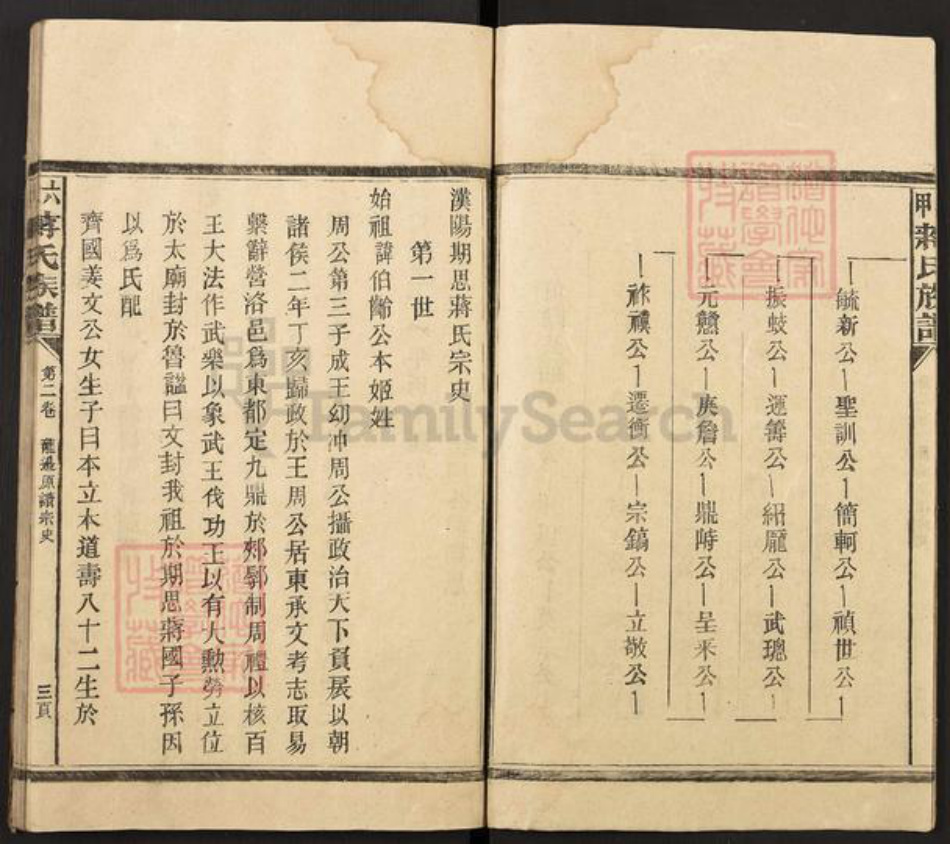 蔣氏族譜
毓新公 聖訓公 簡軻公 禎世公
振蛟公 運籌公 紹龐公 武璁公
元戇公 庚詹公 鼎時公 呈釆公
祚禩公 遷衡公 宗鎬公 立敬公
漢陽期思蔣氏宗史
第一世
始祖諱伯齡公本姬姓
周公第三子成王幼冲周公攝政治天下負扆以朝
諸侯二年丁亥歸政於王周公居東承文考志取易
繫辭營洛邑爲東都定九鼎於郟鄏制周禮以核百
王大法作武樂以象武王伐功王以有大勲勞立位
於太廟封於魯謚曰文封我祖於期思蔣國子孫因
以爲氏配
齊國姜文公女生子曰本立本道壽八十二生於
六
蔣氏族譜
第二卷
原讀宗史
三頁
FamilySearch